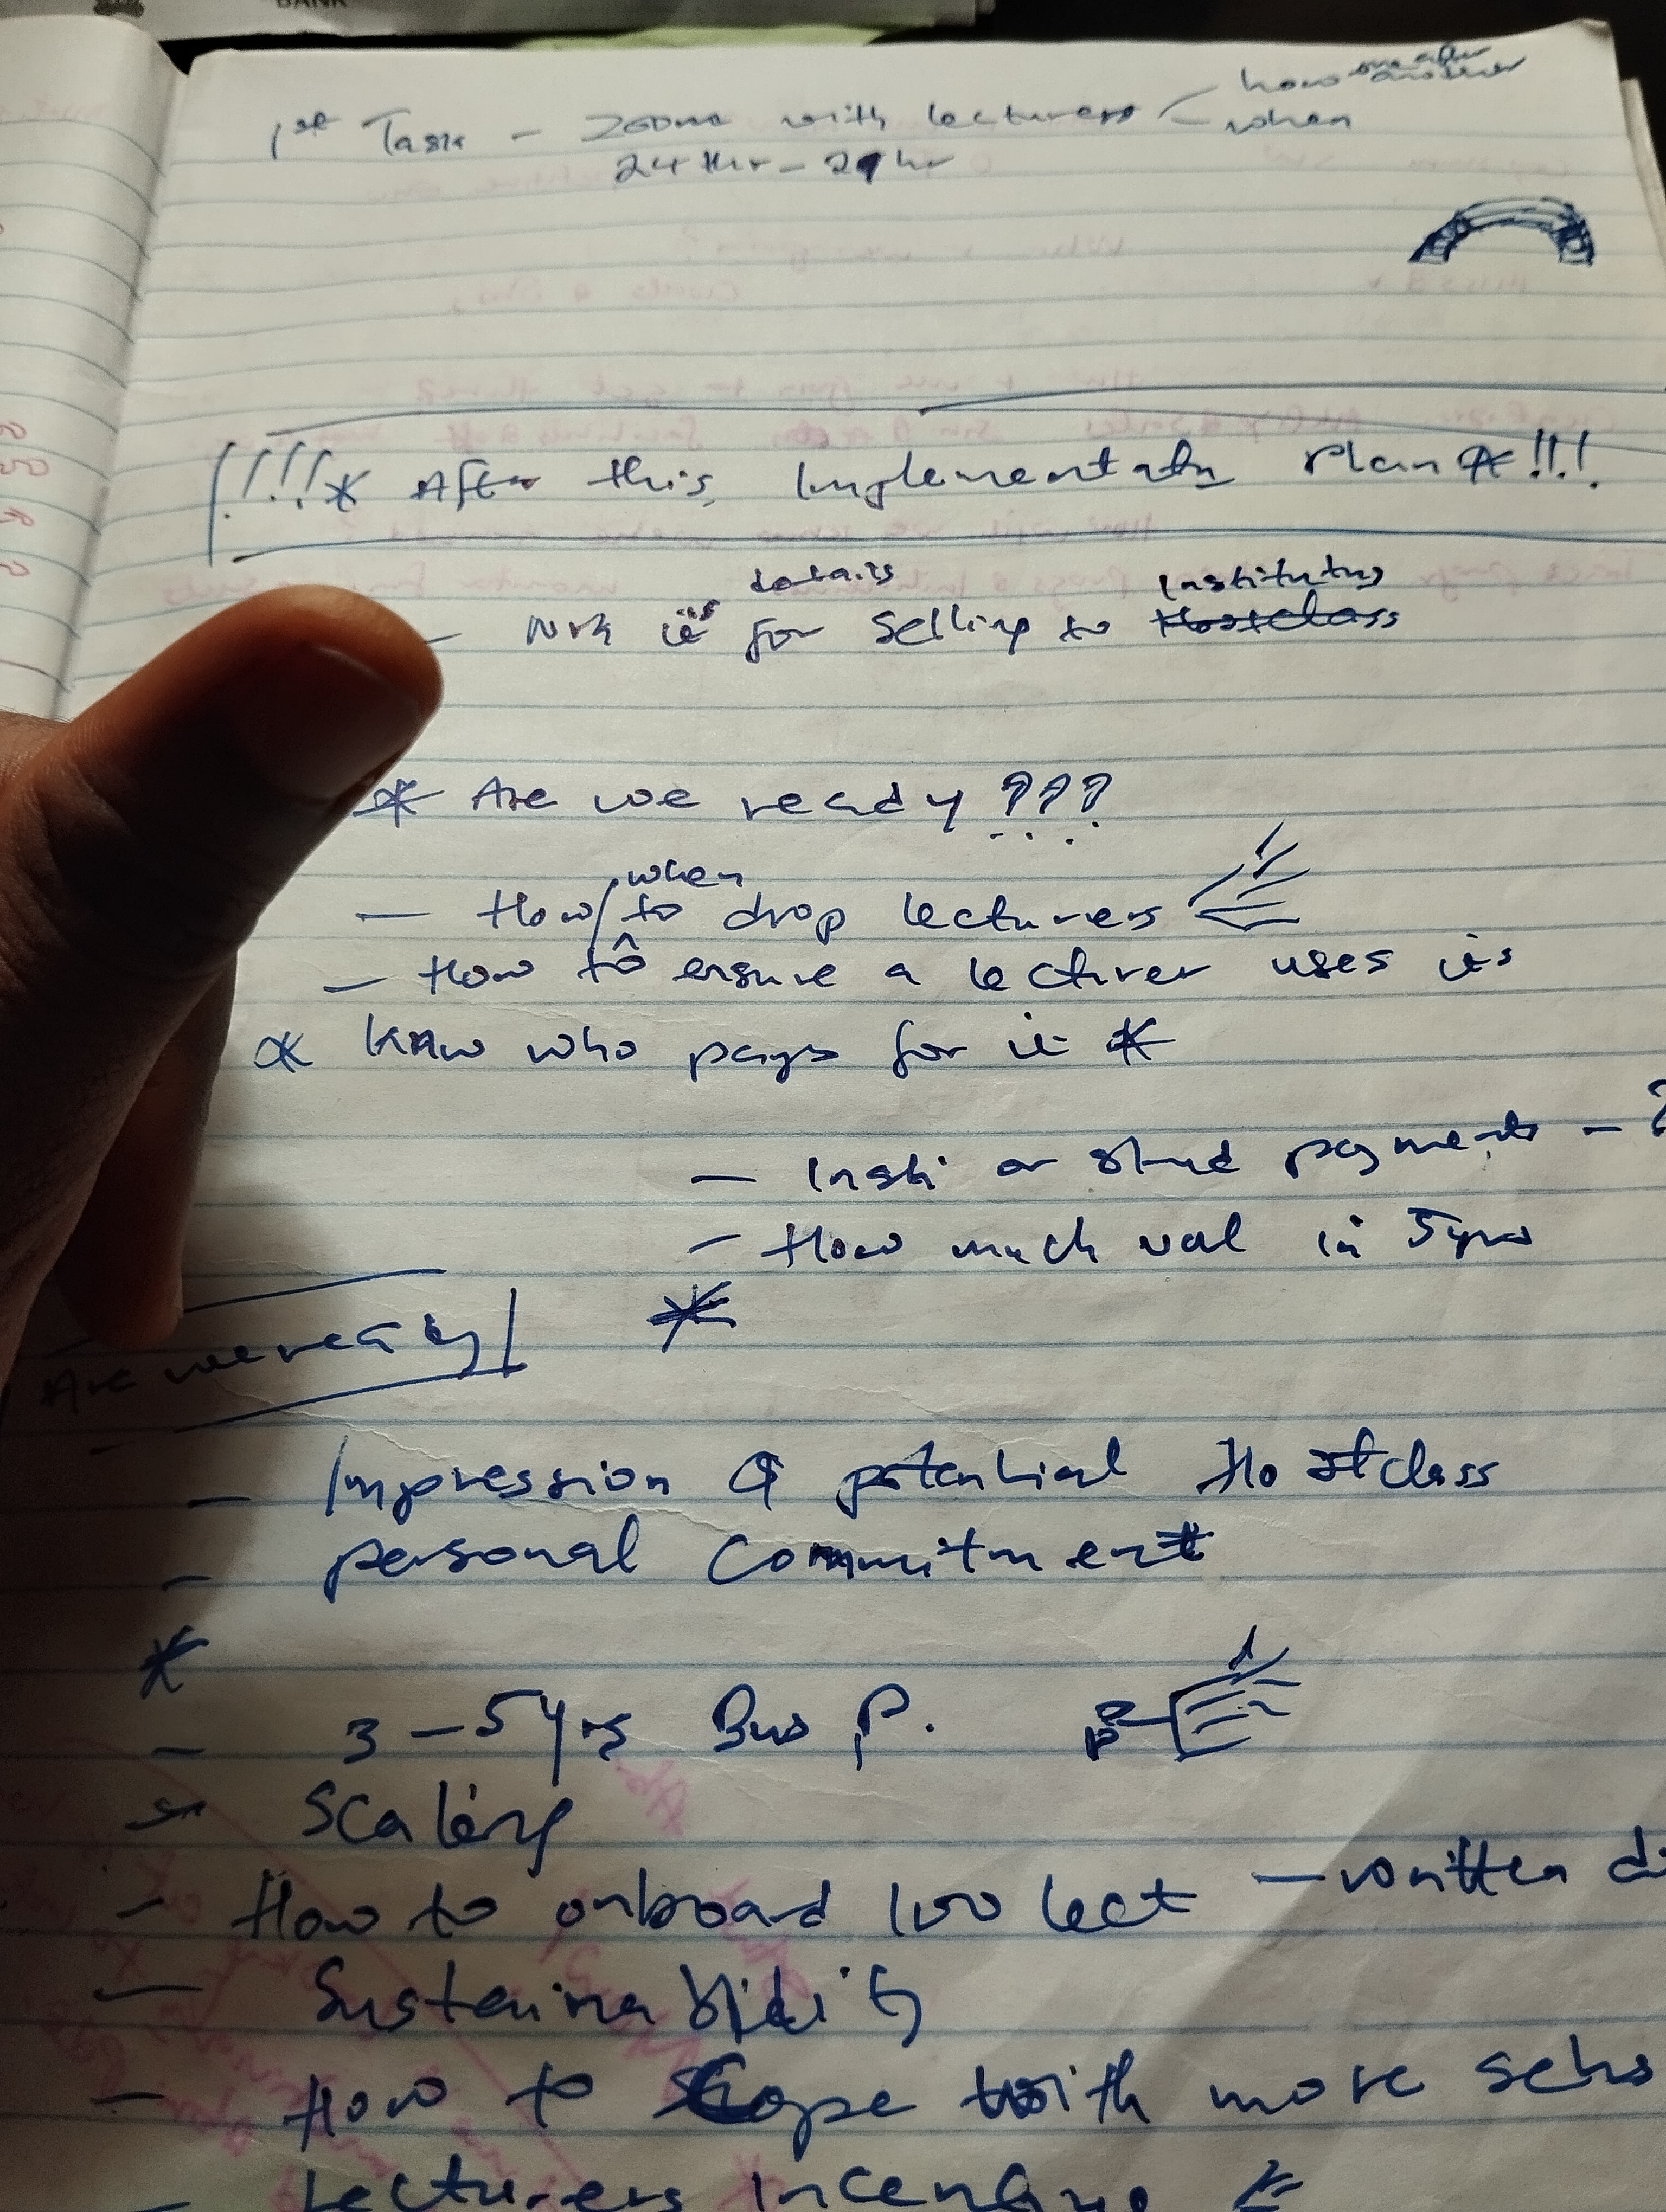 BANK
how one after another
1st Task - zoom with lecturers
when
24 thr -
!!!* After this, Implementatn Plan * !!!
details
Institutns
for selling to Hostclass
* Are we ready ???
when
- How/to drop lecturers
- How to ensure a lecturer uses it
* Know who pays for it *
- Insti or stud payments - ?
- How much val in 5yrs
Are we ready
*
- Impression & potential Hostclass
- personal commitment
*
- 3-5yrs Bus P.
- Scaling
- How to onboard 100 lect - written
- Sustainability
- How to Cope with more
- Lecturers incentive